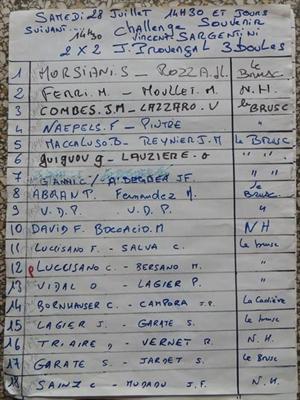 SAMEDI 28 JUILLET 14H30 ET JOURS
SUIVANT... 14H30 Challenge SOUVENIR
VINCENT SARGENTINI
2 X 2 J. PROVENÇAL 3 BOULES
1 MORSIANI.S - ROZZA.JL. le BRUSC
2 FERRI.M - MOULLET.M. N.H.
3 COMBES.J.M - LAZZARO.V le BRUSC
4 NAEPELS.F - PINTRE "
5 MACCALUSO.B - REYNIER J.M le BRUSC
6 GUIGUOU G - LAUZIERE.G " "
7 GIANNI.C / A.DEGBER JF. " "
8 ABRAN P. Fernandez M. le BRUSC
9 V.D.P. V.D.P. "
10 DAVID F. BOCCACIO.M NH
11 LUCCISANO T. - SALVA C. le brusc
12 LUCCISANO C. - BERSANO M. "
13 VIDAL O - LAGIER P. "
14 BORNHAUSER C. - CAMPORA J.P. La Cadière
15 LAGIER J. - GARATE S. le brusc
16 TRIAIRE D - VERNET R. N.H.
17 GARATE S. - JARDET S. le Brusc
18 SAINZ C - MUDADU J.F. N.H.